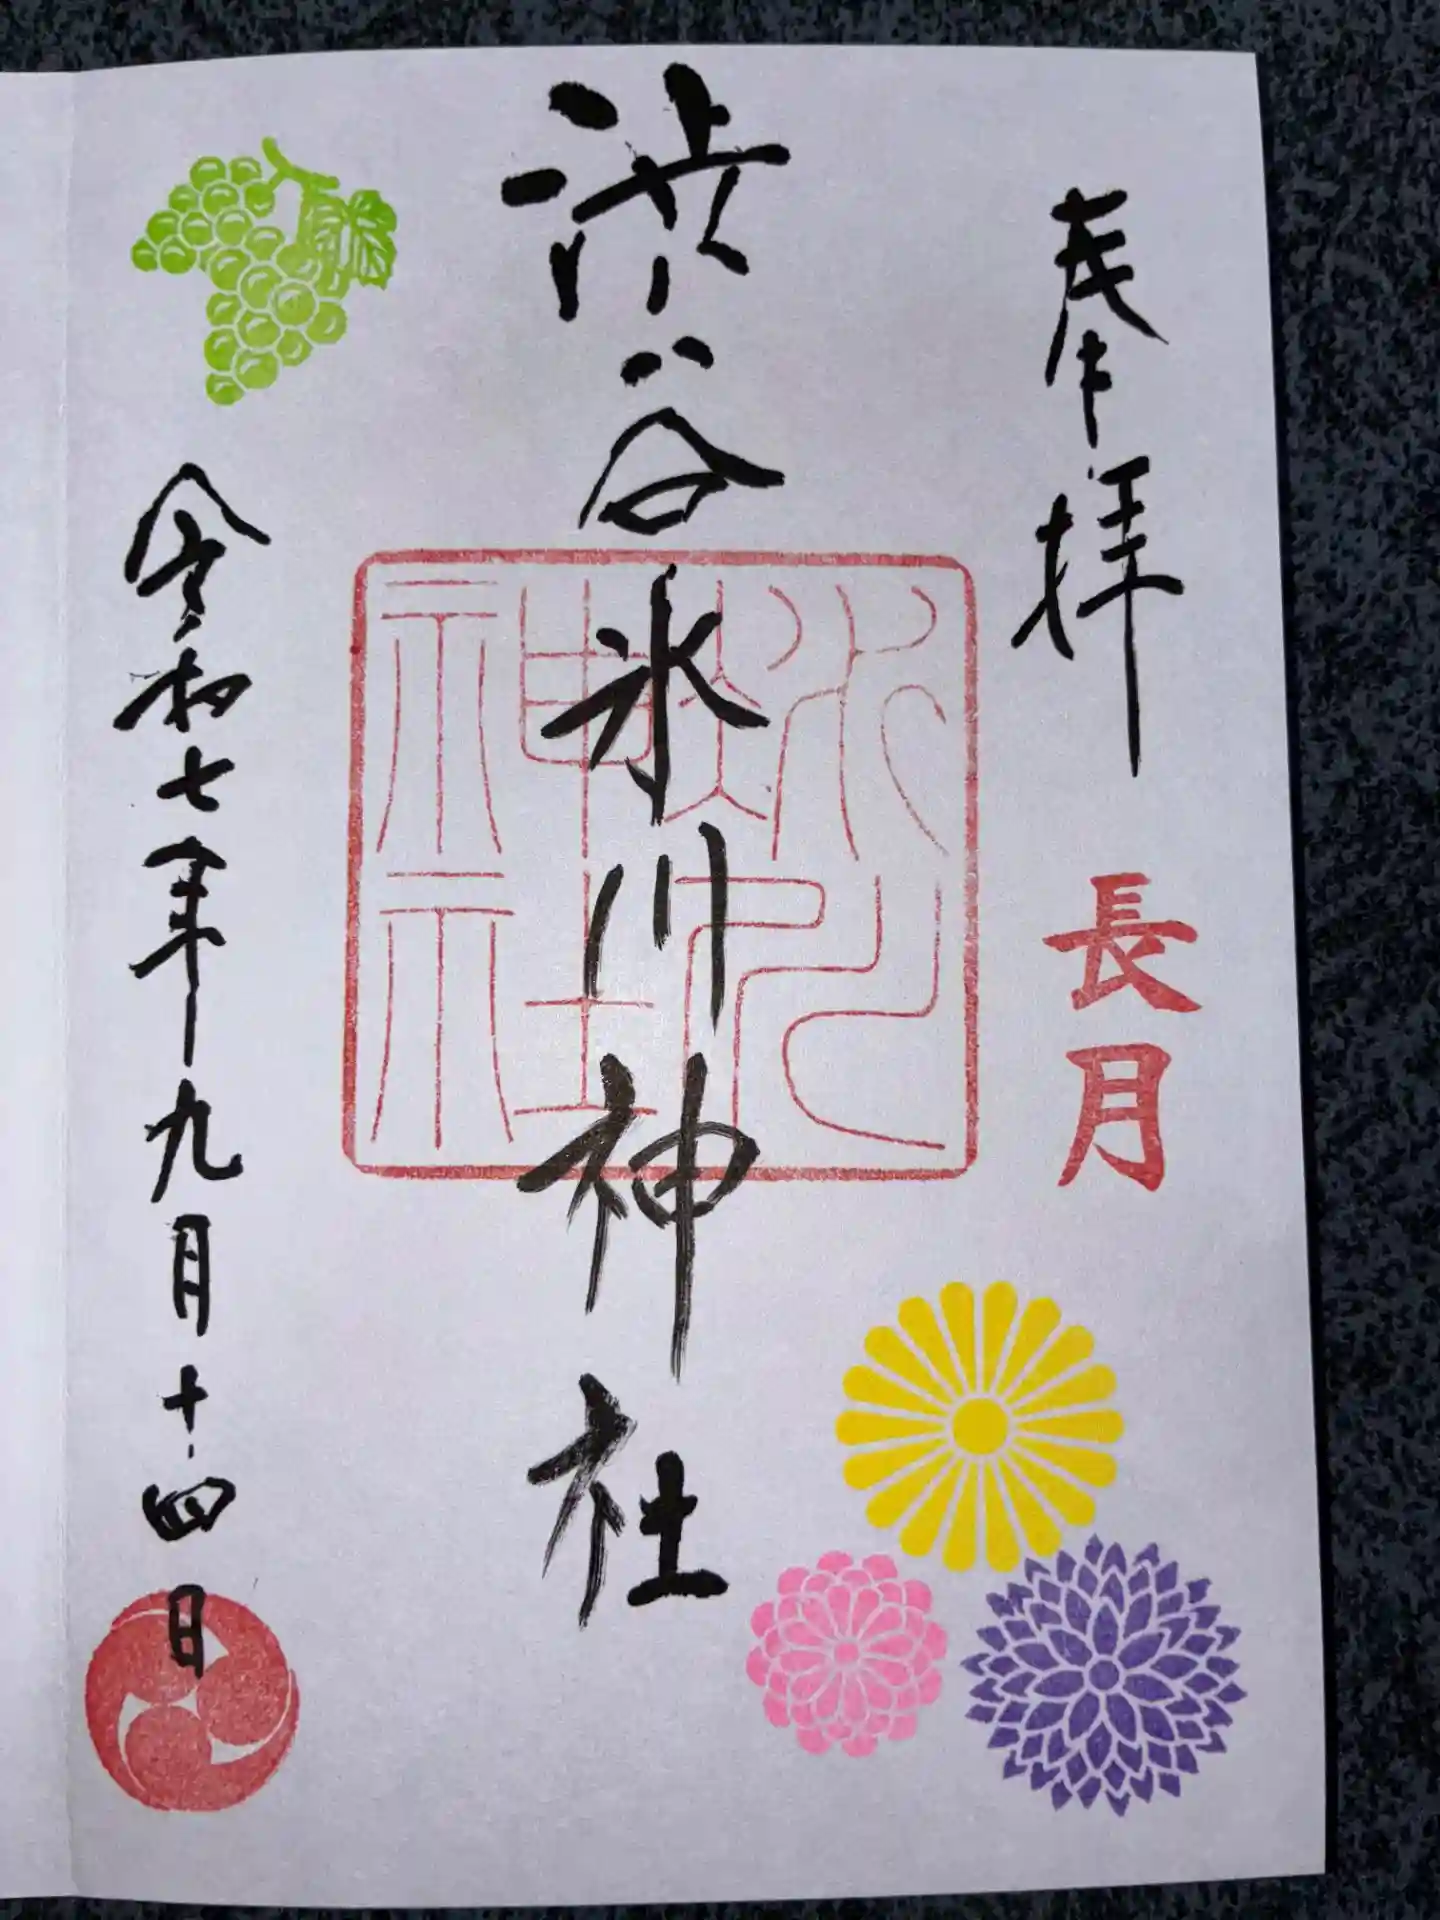 奉拝
長月
渋谷氷川神社
氷川
神社
令和七年九月十四日